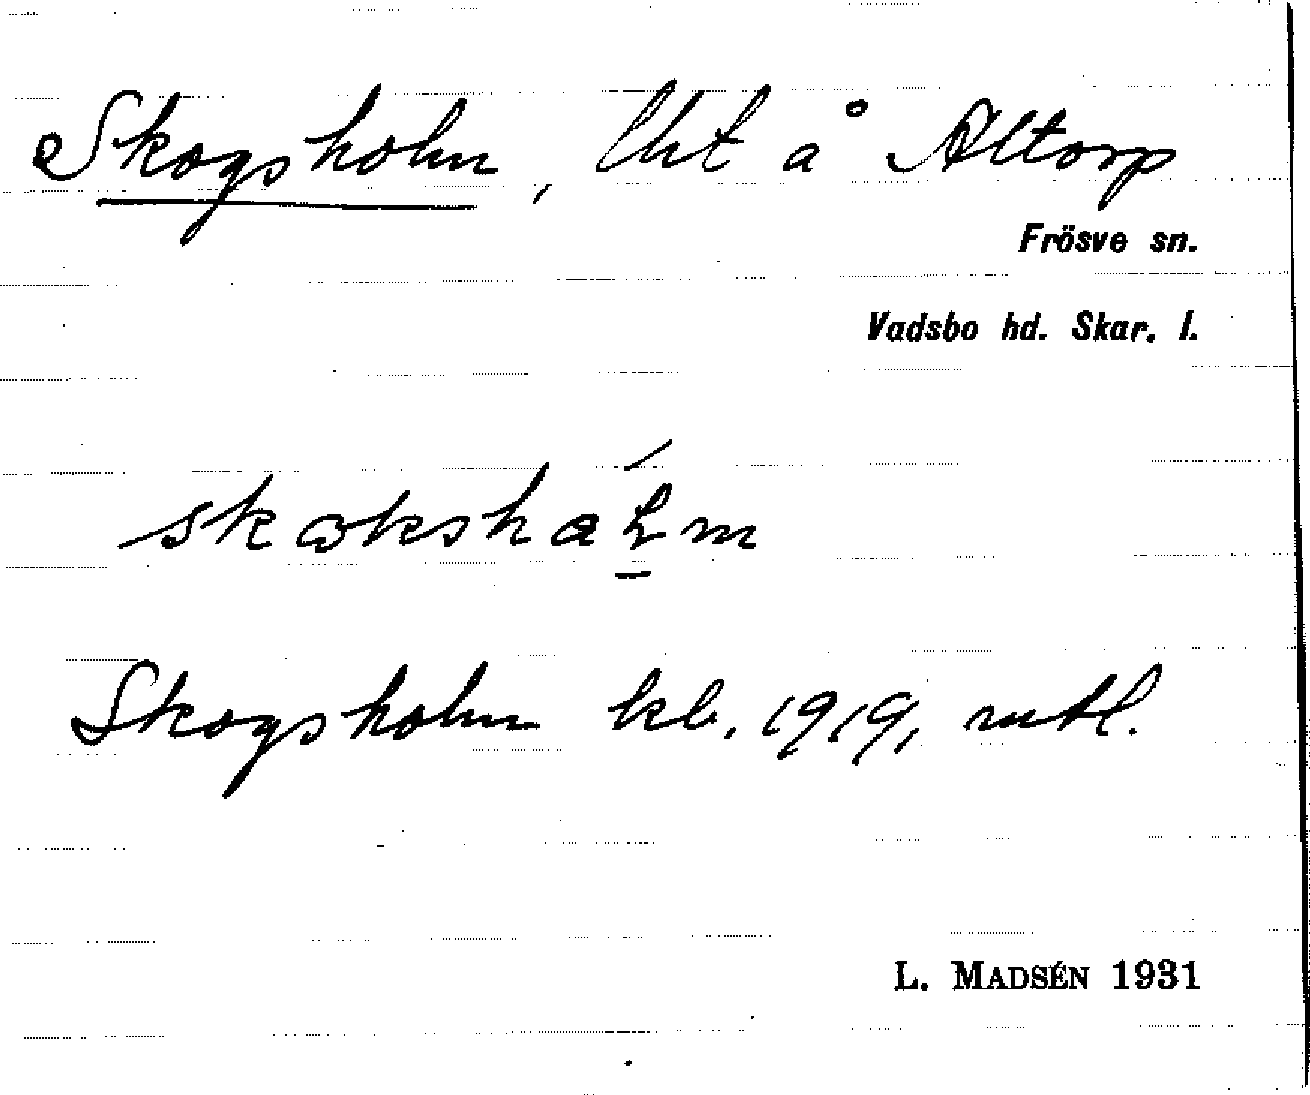 Skogsholm, lht å Altorp
Frösve sn.
Vadsbo hd. Skar. l.
skɷkshaĺ̠m
Skogsholm kb. 1919, mtl.
L. MADSÉN 1931